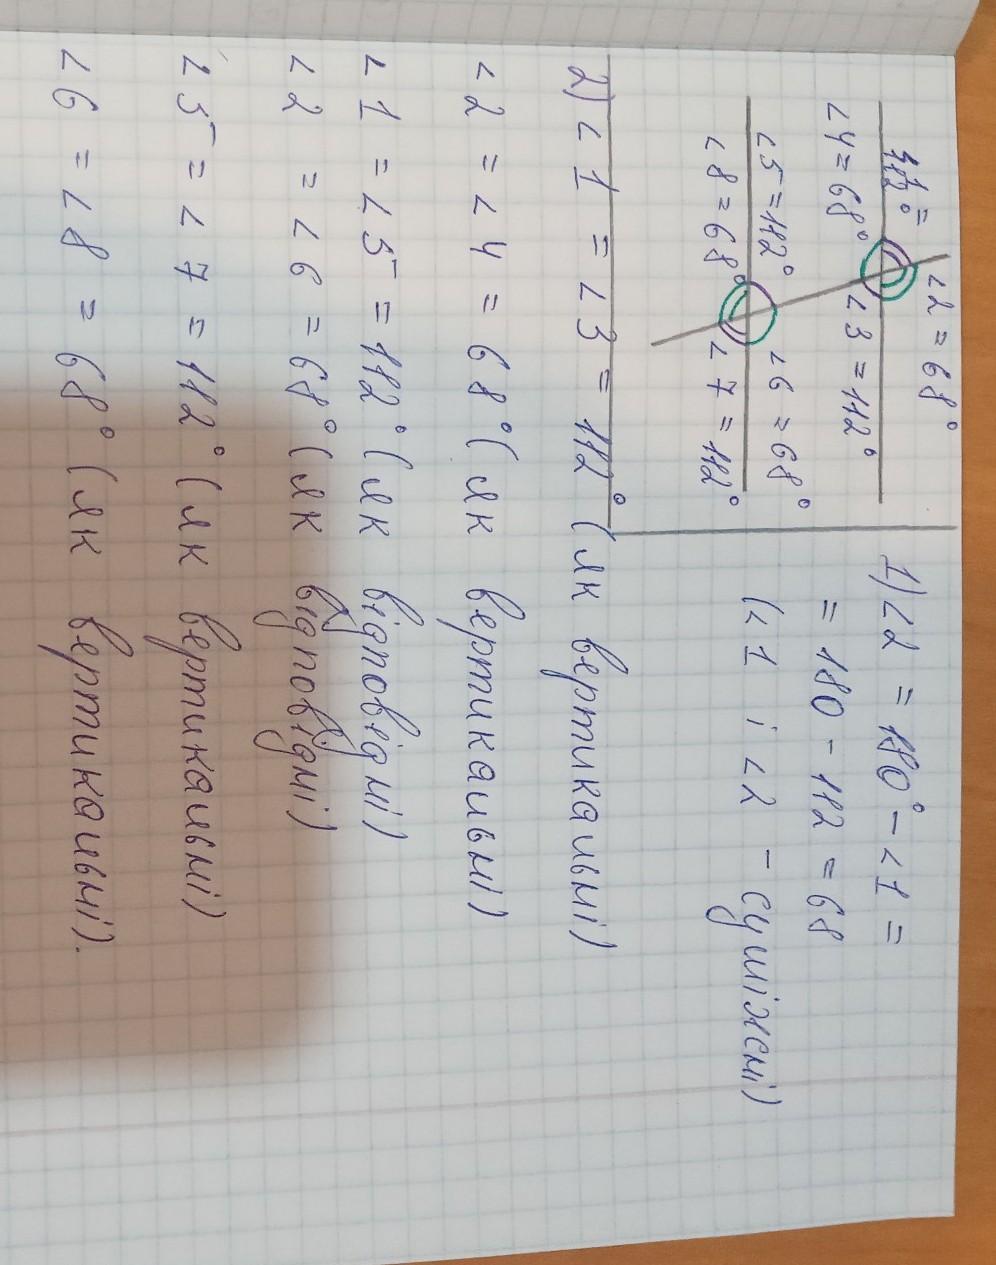 ∠1 =
112°
∠2 = 68°
∠4 = 68°
∠3 = 112°
∠5 = 112°
∠6 = 68°
∠8 = 68°
∠7 = 112°
1) ∠2 = 180° - ∠1 =
= 180 - 112 = 68
(∠1 і ∠2 - суміжні)
2) ∠1 = ∠3 = 112° (як вертикальні)
∠2 = ∠4 = 68° (як вертикальні)
∠1 = ∠5 = 112° (як відповідні)
∠2 = ∠6 = 68° (як відповідні)
∠5 = ∠7 = 112° (як вертикальні)
∠6 = ∠8 = 68° (як вертикальні).